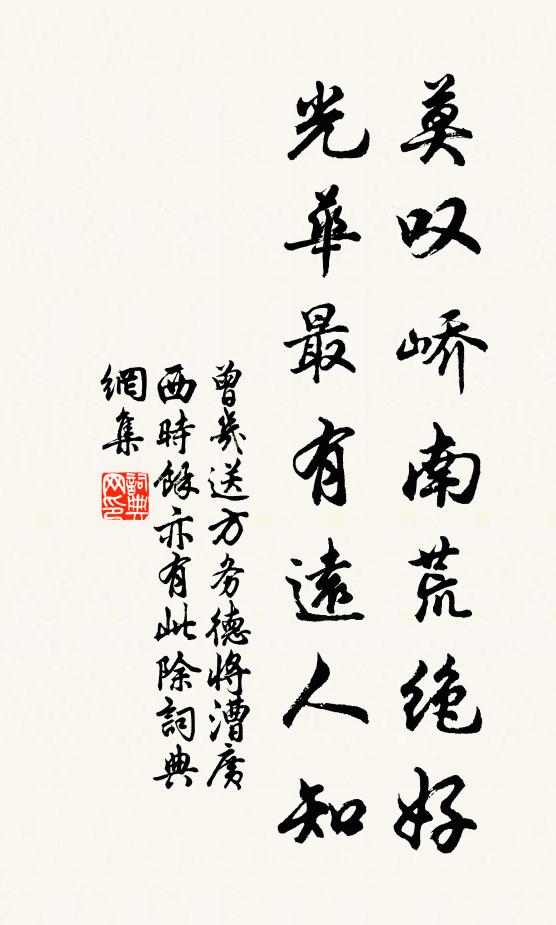 莫叹峤南荒绝好
光華最有遠人知
曾幾送方务德将漕廣
西時餘亦有此除詞典
網集
詞典網印